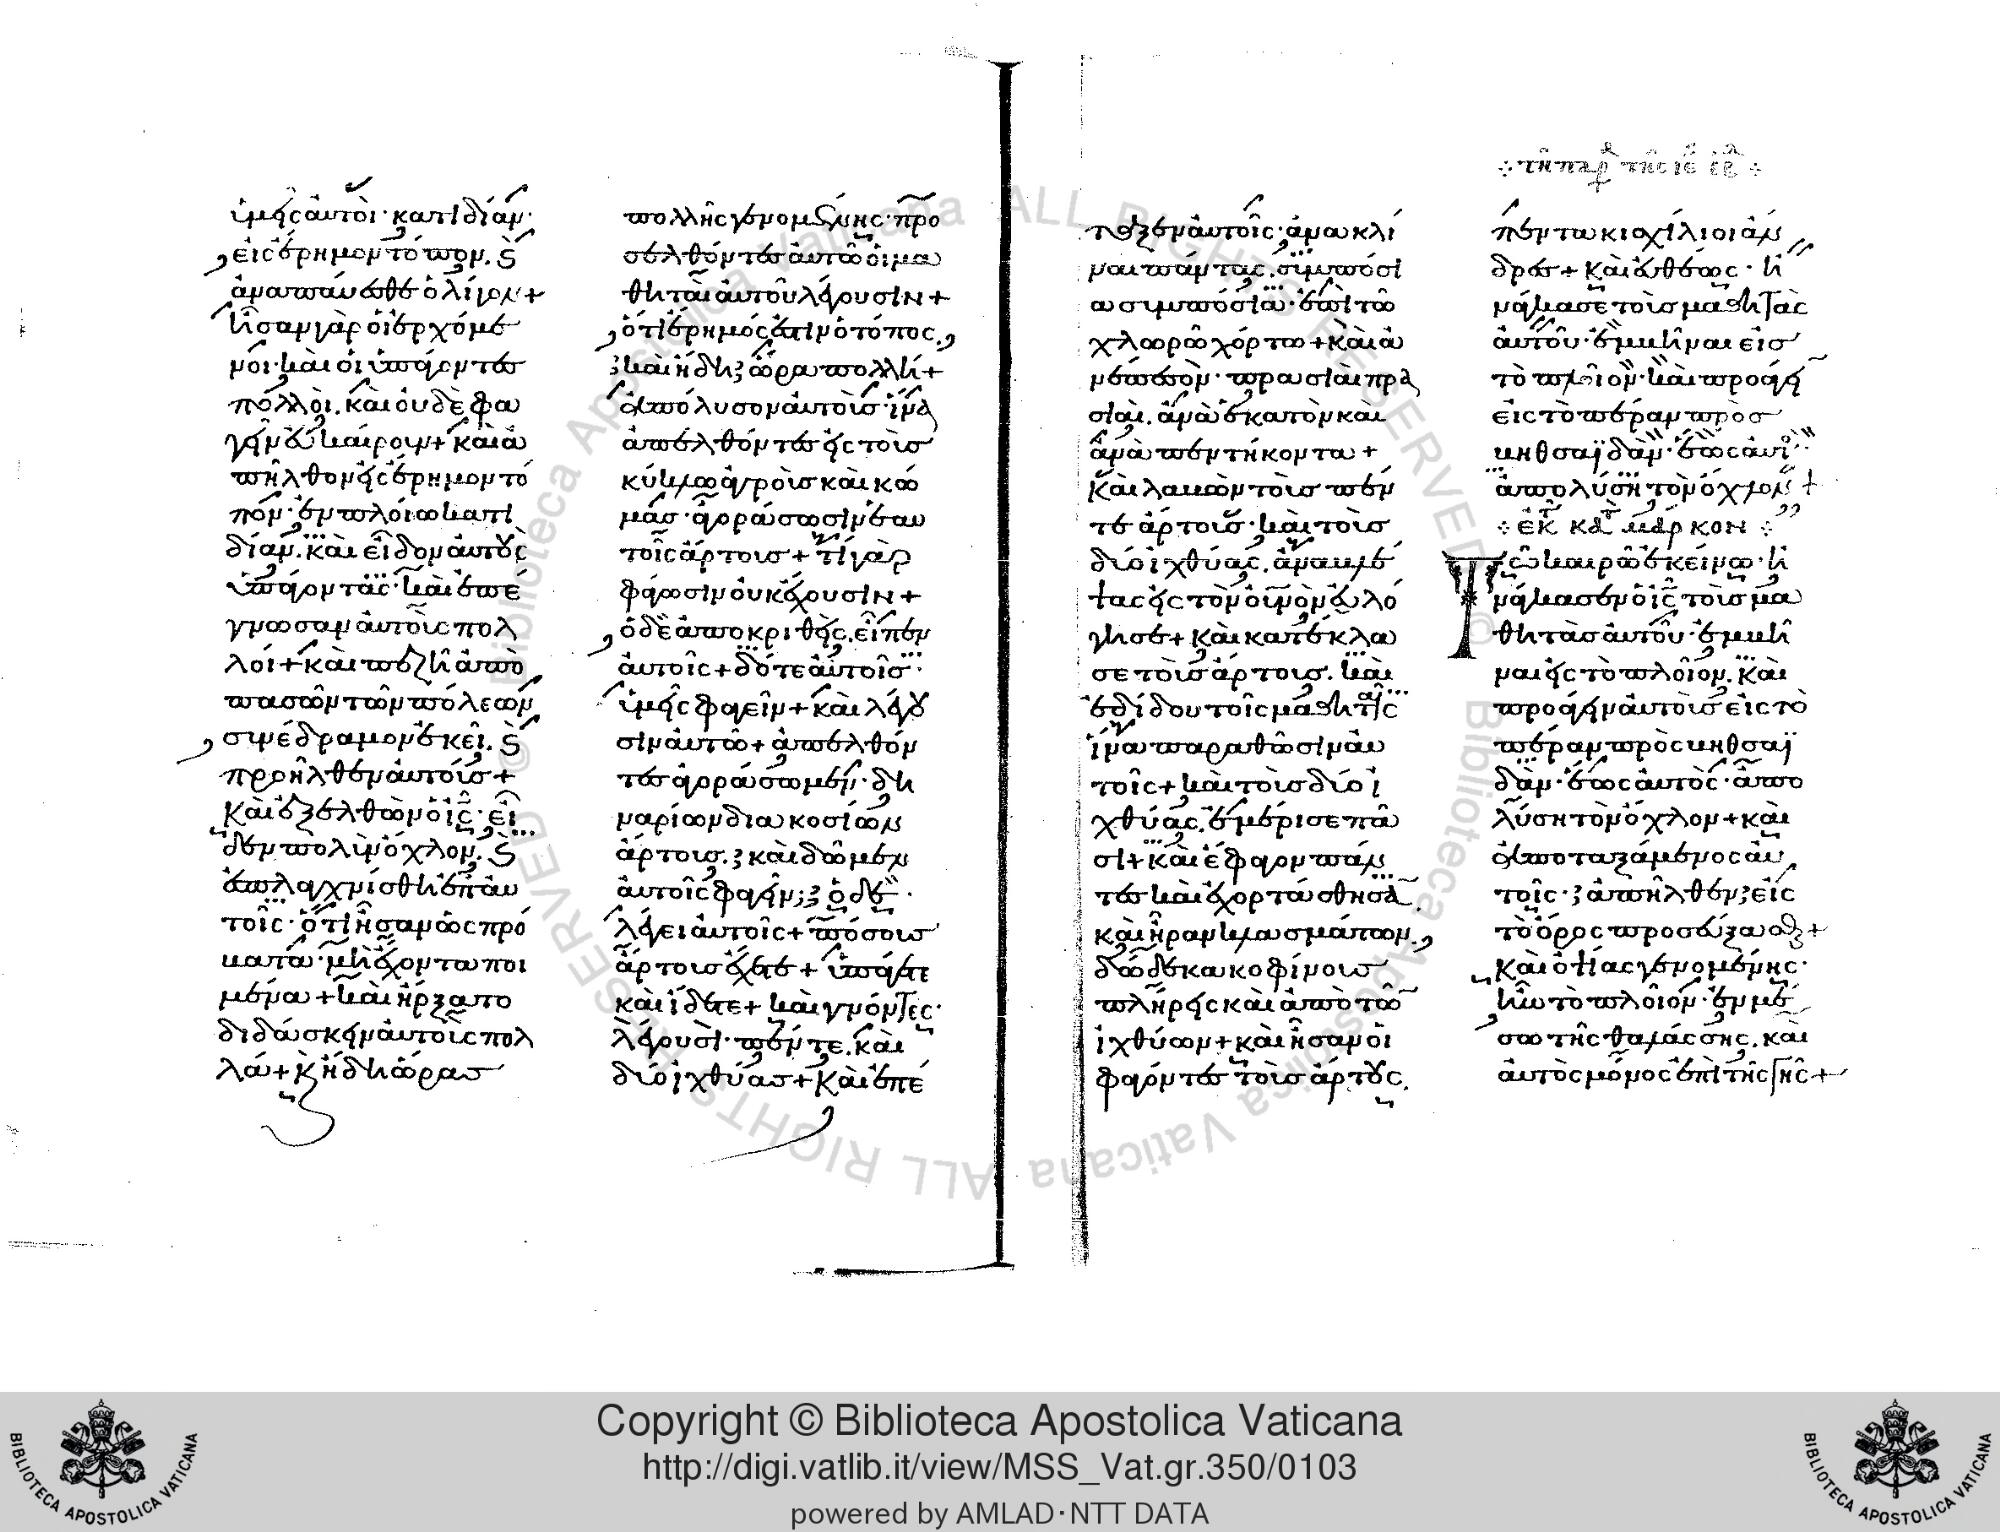 ὑμεῖς αὐτοὶ· κατιδίαν·
εἰς ἔρημον τόπον. καὶ
ἀναπαύεσθε ὀλίγον+
ἦσαν γὰρ οἱ ἐρχόμε
νοι· καὶ οἱ ὑπάγοντες
πολλοὶ. καὶ οὐδὲ φα
γεῖν εὐκαίρουν+ καὶ ἀ
πῆλθον εἰς ἔρημον τό
πον· ἐν πλοίω κατι
δίαν. καὶ εἶδον αὐτοὺς
ὑπάγοντας· καὶ ἐπέ
γνωσαν αὐτοῖς πολ
λοί+ καὶ πεζῆ ἀπὸ
πασῶν τῶν πόλεων
συνέδραμον ἐκεῖ. καὶ
προῆλθεν αὐτοὺς+
Καὶ ἐξελθὼν ὁ ις· εἶ
δεν πολὺν ὄχλον. καὶ
ἐσπλαγχνίσθη ἐπ αυ
τοῖς· ὅτι ἦσαν ὡς πρό
βατα· μὴ ἔχοντα ποι
μένα+ καὶ ἤρξατο
διδάσκειν αὐτοὺς πολ
λά+ κ ἤδη ὥρας
πολλῆς γενομένης· προ
σελθόντες αὐτῶ οἱ μα
θηταὶ αὐτοῦ λέγουσιν+
ὅτι ἔρημός ἐστιν ὁ τόπος.
καὶ ἤδη ὥρα πολλή+
ἀπόλυσον αὐτοὺς· ἵνα
ἀπελθόντες εἰς τοὺς
κύκλω ἀγροὺς καὶ κώ
μας· ἀγοράσωσιν ἑαυ
τοῖς ἄρτους+ τί γὰρ
φάγωσιν οὐκ ἔχουσιν+
ὁ δὲ ἀποκριθεὶς. εἶπεν
αὐτοῖς+ δότε αὐτοῖς
ὑμεῖς φαγεῖν+ καὶ λέγου
σιν αὐτῶ+ ἀπελθόν
τες ἀγοράσωμεν· δη
ναρίων διακοσίων
ἄρτους. καὶ δῶμεν
αὐτοῖς φαγεῖν; ὁ δὲ·
λέγει αὐτοῖς+ πόσους
ἄρτους ἔχετε+ ὑπάγετε
καὶ ἴδετε+ καὶ γνόντες·
λέγουσι· πέντε. καὶ
δύο ἰχθύας+ Καὶ ἐπέ
ταξεν αὐτοῖς· ἀνακλί
ναι πάντας. συμπόσι
α συμπόσια· ἐπὶ τῶ
χλωρῶ χόρτω+ καὶ ἀ
νέπεσον· πρασιαὶ πρα
σιαὶ. ἀνὰ ἑκατὸν καὶ
ἀνὰ πεντήκοντα+
Καὶ λαβὼν τοὺς πέν
τε ἄρτους· καὶ τοὺς
δύο ἰχθύας. ἀναβλέ
ψας εἰς τὸν οὐνὸν εὐλό
γησε+ καὶ κατέκλα
σε τοὺς ἄρτους. καὶ
ἐδίδου τοῖς μαθηταῖς
ἵνα παραθῶσιν αὐ
τοῖς+ καὶ τοὺς δύο ἰ
χθύας. ἐμέρισε πᾶ
σι+ καὶ ἔφαγον πάν
τες καὶ ἐχορτάσθησα
καὶ ἦραν κλασμάτων.
δώδεκα κοφίνους
πλήρεις καὶ ἀπὸ τῶ
ἰχθύων+ καὶ ἦσαν οἱ
φαγόντες τοὺς ἄρτους.
τῆ παρ τῆς ιε ἑβδ
πεντακισχίλιοι ἄν
δρες+ Καὶ εὐθέως· ἠ
νάγκασε τοὺς μαθητὰς
αὐτοῦ· ἐμβῆναι εἰς
τὸ πλοῖον· καὶ προάγει
εἰς τὸ πέραν πρὸς
βηθσαϊδὰν· ἕως αὐτ
ἀπολύση τὸν ὄχλον+
ἐκ κατ μάρκον
Τῶ καιρῶ ἐκείνω· ἠ
νάγκασεν ὁ ις τοὺς μα
θητὰς αὐτοῦ· ἐμβῆ
ναι εἰς τὸ πλοῖον. καὶ
προάγειν αὐτοὺς εἰς τὸ
πέραν πρὸς βηθσαϊ
δὰν· ἕως αὐτὸς· ἀπο
λύση τὸν ὄχλον+ καὶ
ἀποταξάμενος αὐ
τοῖς· ἀπῆλθεν; εἰς
τὸ ὄρος προσεύξασθαι+
Καὶ ὀψίας γενομένης·
ἦν τὸ πλοῖον· ἐν μέ
σω τῆς θαλάσσης. καὶ
αὐτὸς μόνος ἐπὶ τῆς γῆς+
Biblioteca Apostolica Vaticana ALL RIGHTS RESERVED ©
Biblioteca Apostolica Vaticana ALL RIGHTS RESERVED ©
BIBLIOTECA APOSTOLICA VATICANA
Copyright © Biblioteca Apostolica Vaticana
http://digi.vatlib.it/view/MSS_Vat.gr.350/0103
powered by AMLAD·NTT DATA
BIBLIOTECA APOSTOLICA VATICANA